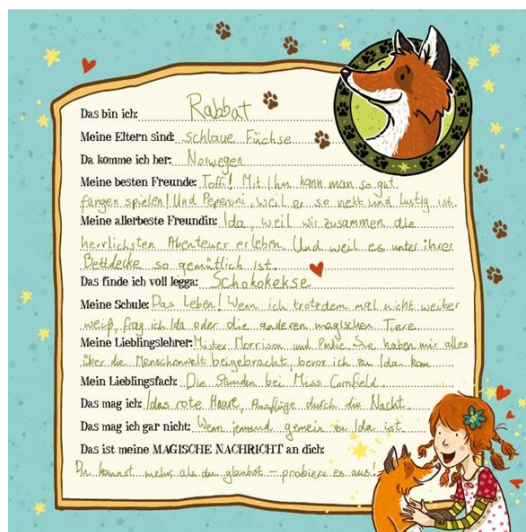 Das bin ich: Rabbat
Meine Eltern sind: schlaue Füchse
Da komme ich her: Norwegen
Meine besten Freunde: Toffi! Mit Ihm kann man so gut
fangen spielen! Und Peperoni, weil er so nett und lustig ist.
Meine allerbeste Freundin: Ida, weil wir zusammen die
herrlichsten Abenteuer erleben. Und weil es unter ihrer
Bettdecke so gemütlich ist.
Das finde ich voll legga: Schokokekse
Meine Schule: Das Leben! Wenn ich trotzdem mal nicht weiter
weiß, frag ich Ida oder die anderen magischen Tiere.
Meine Lieblingslehrer: Mister Morrison und Pinkie. Sie haben mir alles
über die Menschenwelt beigebracht, bevor ich zu Ida kam
Mein Lieblingsfach: Die Stunden bei Miss Cornfield.
Das mag ich: Idas rote Haare, Ausflüge durch die Nacht.
Das mag ich gar nicht: Wenn jemand gemein zu Ida ist
Das ist meine MAGISCHE NACHRICHT an dich:
Du kannst mehr, als du glaubst – probiere es aus!